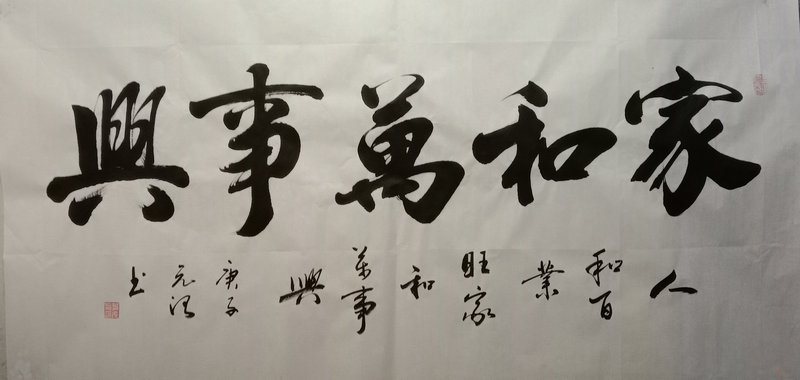 家和萬事興
人和百業旺家和萬事興
庚子元 书